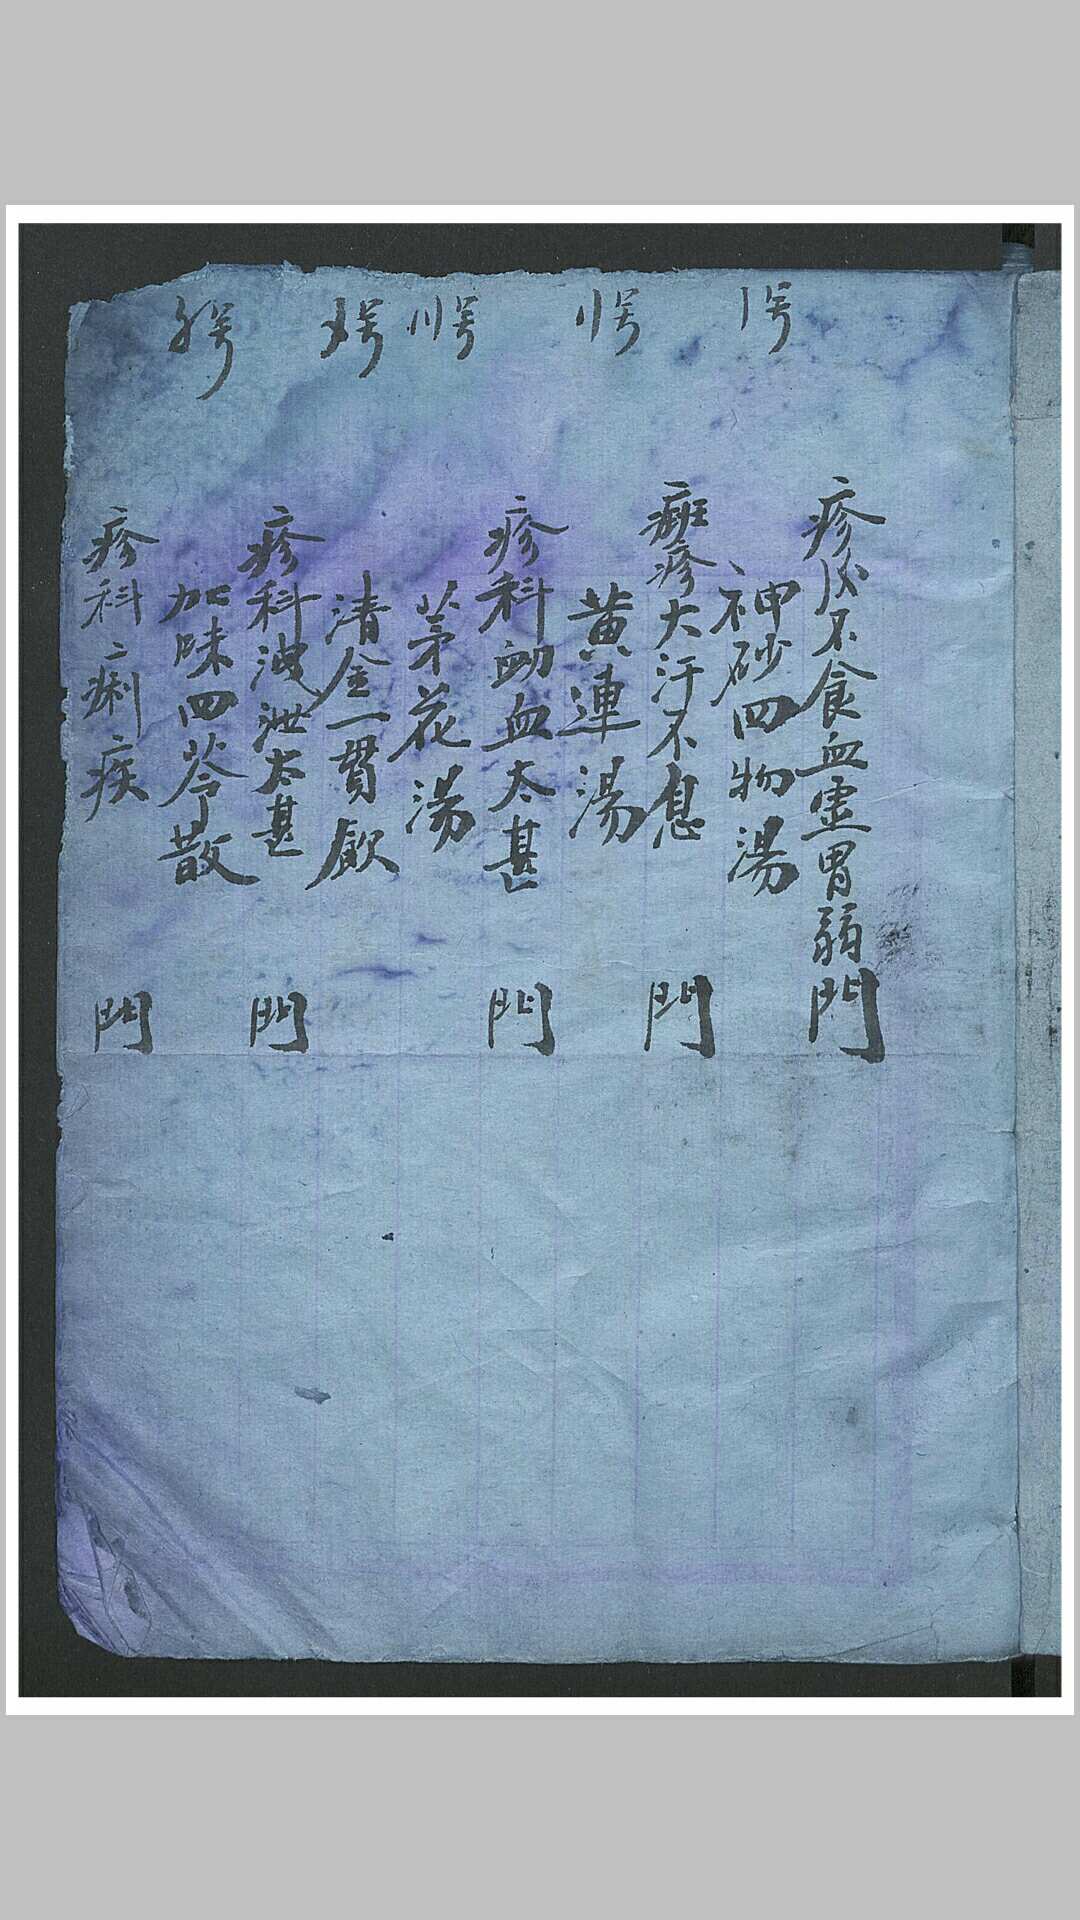 疹後不食血虛胃弱門
〡号
神砂四物湯
癍疹大汗不息門
〢号
黃連湯
疹科衂血太甚門
〣号
茅花湯
〤号
清金一貫飲
疹科洩泄太甚門
号
加味四苓散
疹科痢疾門